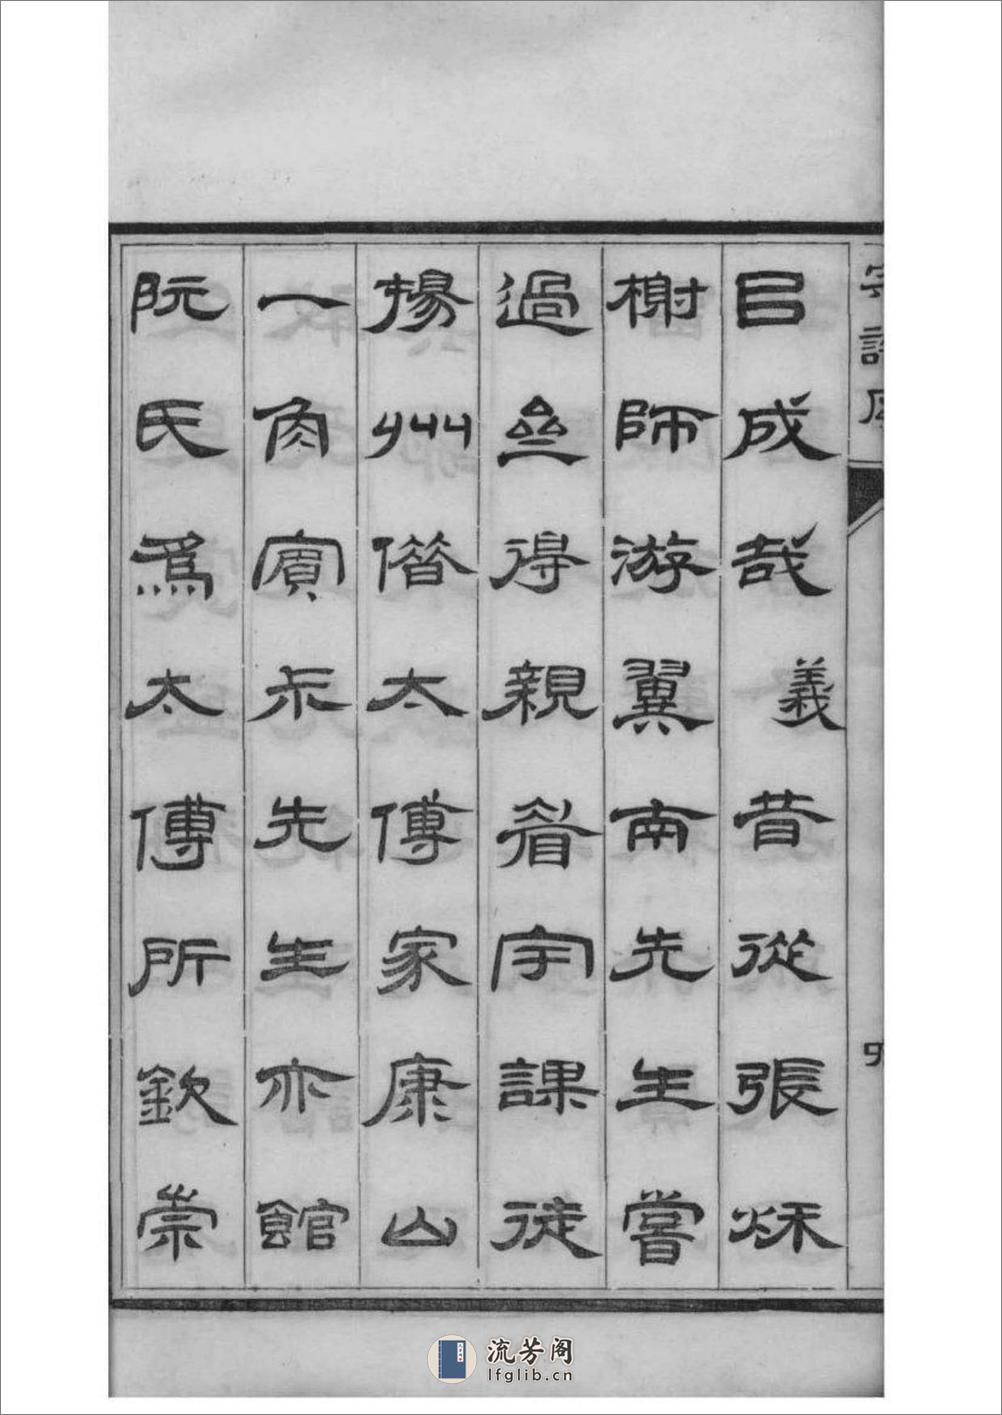 㠯成哉義昔從張秌
榭師游翼南先生嘗
過坌得親眘宇課徒
揚州偕太傅家康山
一角賓示先生亦館
阮氏爲太傅所欽崇
流芳阁
lfglib.cn